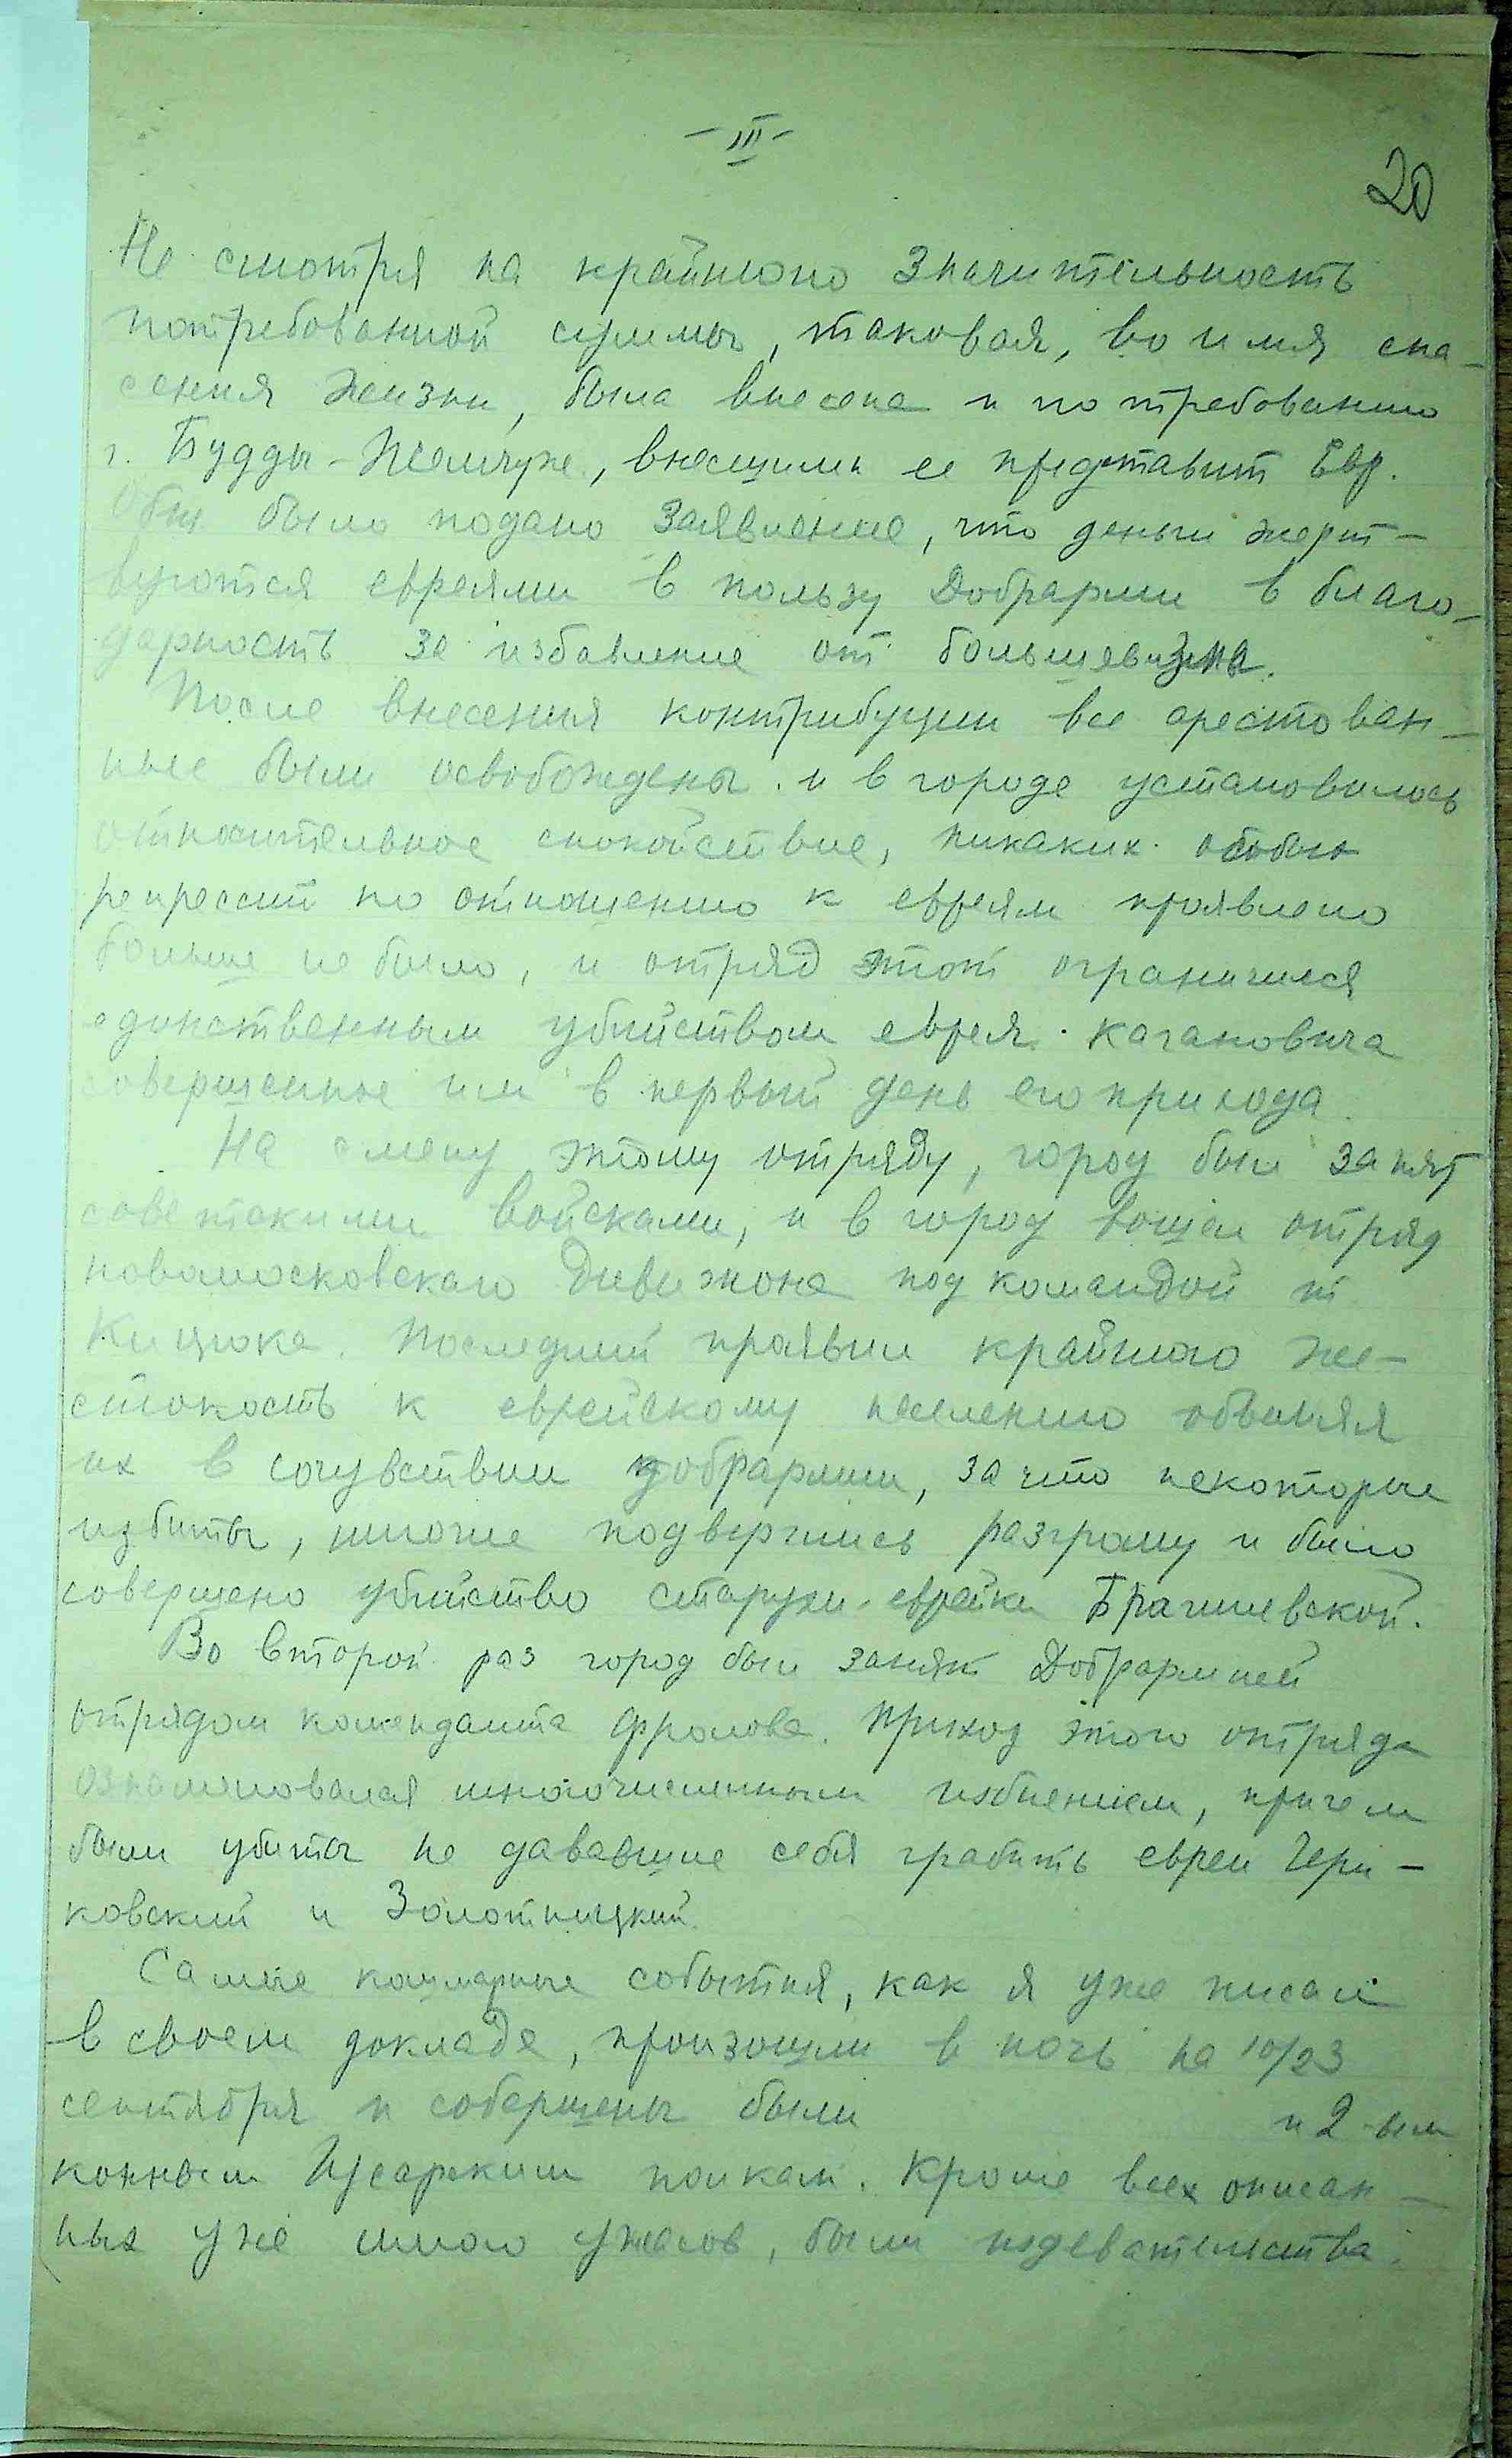 - III -
20
Не смотря на крайнюю значительность
потребованной суммы, таковая, во имя спа-
сения жизни, была внесена и по требованию
г. Будды-Жемчужн., внесшими ее представит Евр.
Общ было подано заявление, что деньги жерт-
вуются евреями в пользу Добрармии в благо-
дарность за избавление от большевизма.
После внесения контрибуции все арестован-
ные были освобождены и в городе установилось
относительное спокойствие, никаких особых
репрессий по отношению к евреям проявлено
больше не было, и отряд этот ограничился
единственным убийством еврея Кагановича
совершенное им в первый день его прихода.
На смену этому отряду, город был занят
советскими войсками, и в город вошел отряд
новомосковского дивизиона под командой т
Кицюка. Последний проявил крайнюю же-
стокость к еврейскому населению обвиняя
их в сочувствии добрармии, за что некоторые
избиты, многие подверглись разгрому и было
совершено убийство старухи-еврейки Брагилевской.
Во второй раз город был занят Добрармией
отрядом коменданта Фролова. Приход этого отряда
ознаменовался многочисленным избиением, причем
были убиты не дававшие себя грабить евреи Чери-
ковский и Золотницкий.
Самые кошмарные события, как я уже писал
в своем докладе, произошли в ночь на 10/23
сентября и совершены были и 2-ым
конным Гусарским полкам. Кроме всех описан-
ных уже мною ужасов, были издевательства.